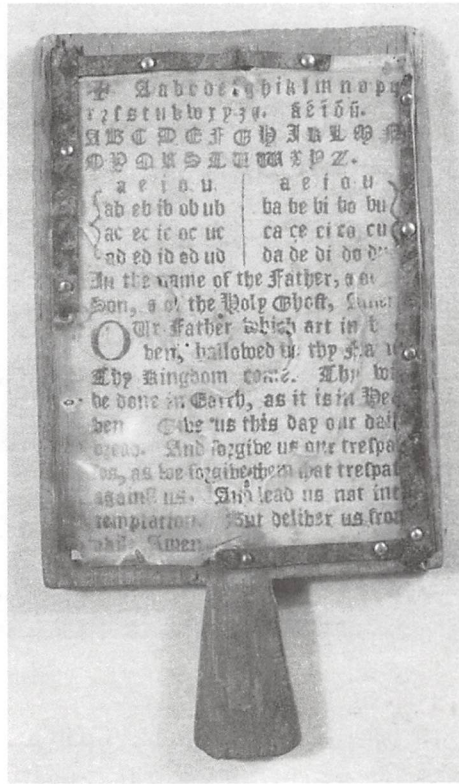 ✠ A a b c d e f g h i k l m n o p q
r ꝛ ſ s t u v w x y z &. á é í ó ú.
A B C D E F G H I K L M N
O P Q R S T U W X Y Z.
a e i o u | a e i o u
ab eb ib ob ub | ba be bi bo bu
ac ec ic oc uc | ca ce ci co cu
ad ed id ed ud | da de di do
In the name of the Father,
Son, & of the Holy Ghoſt,
OUr Father which art in
ven, hallowed thy
Thy Kingdom come. Thy
be done in Earth, as it is in Hea
ven Give us this day our
bread. And forgive us our treſpaſ
ſes, as we forgive them that treſpaſ
againſt us. And lead us not
temptation. But deliver us from
Amen